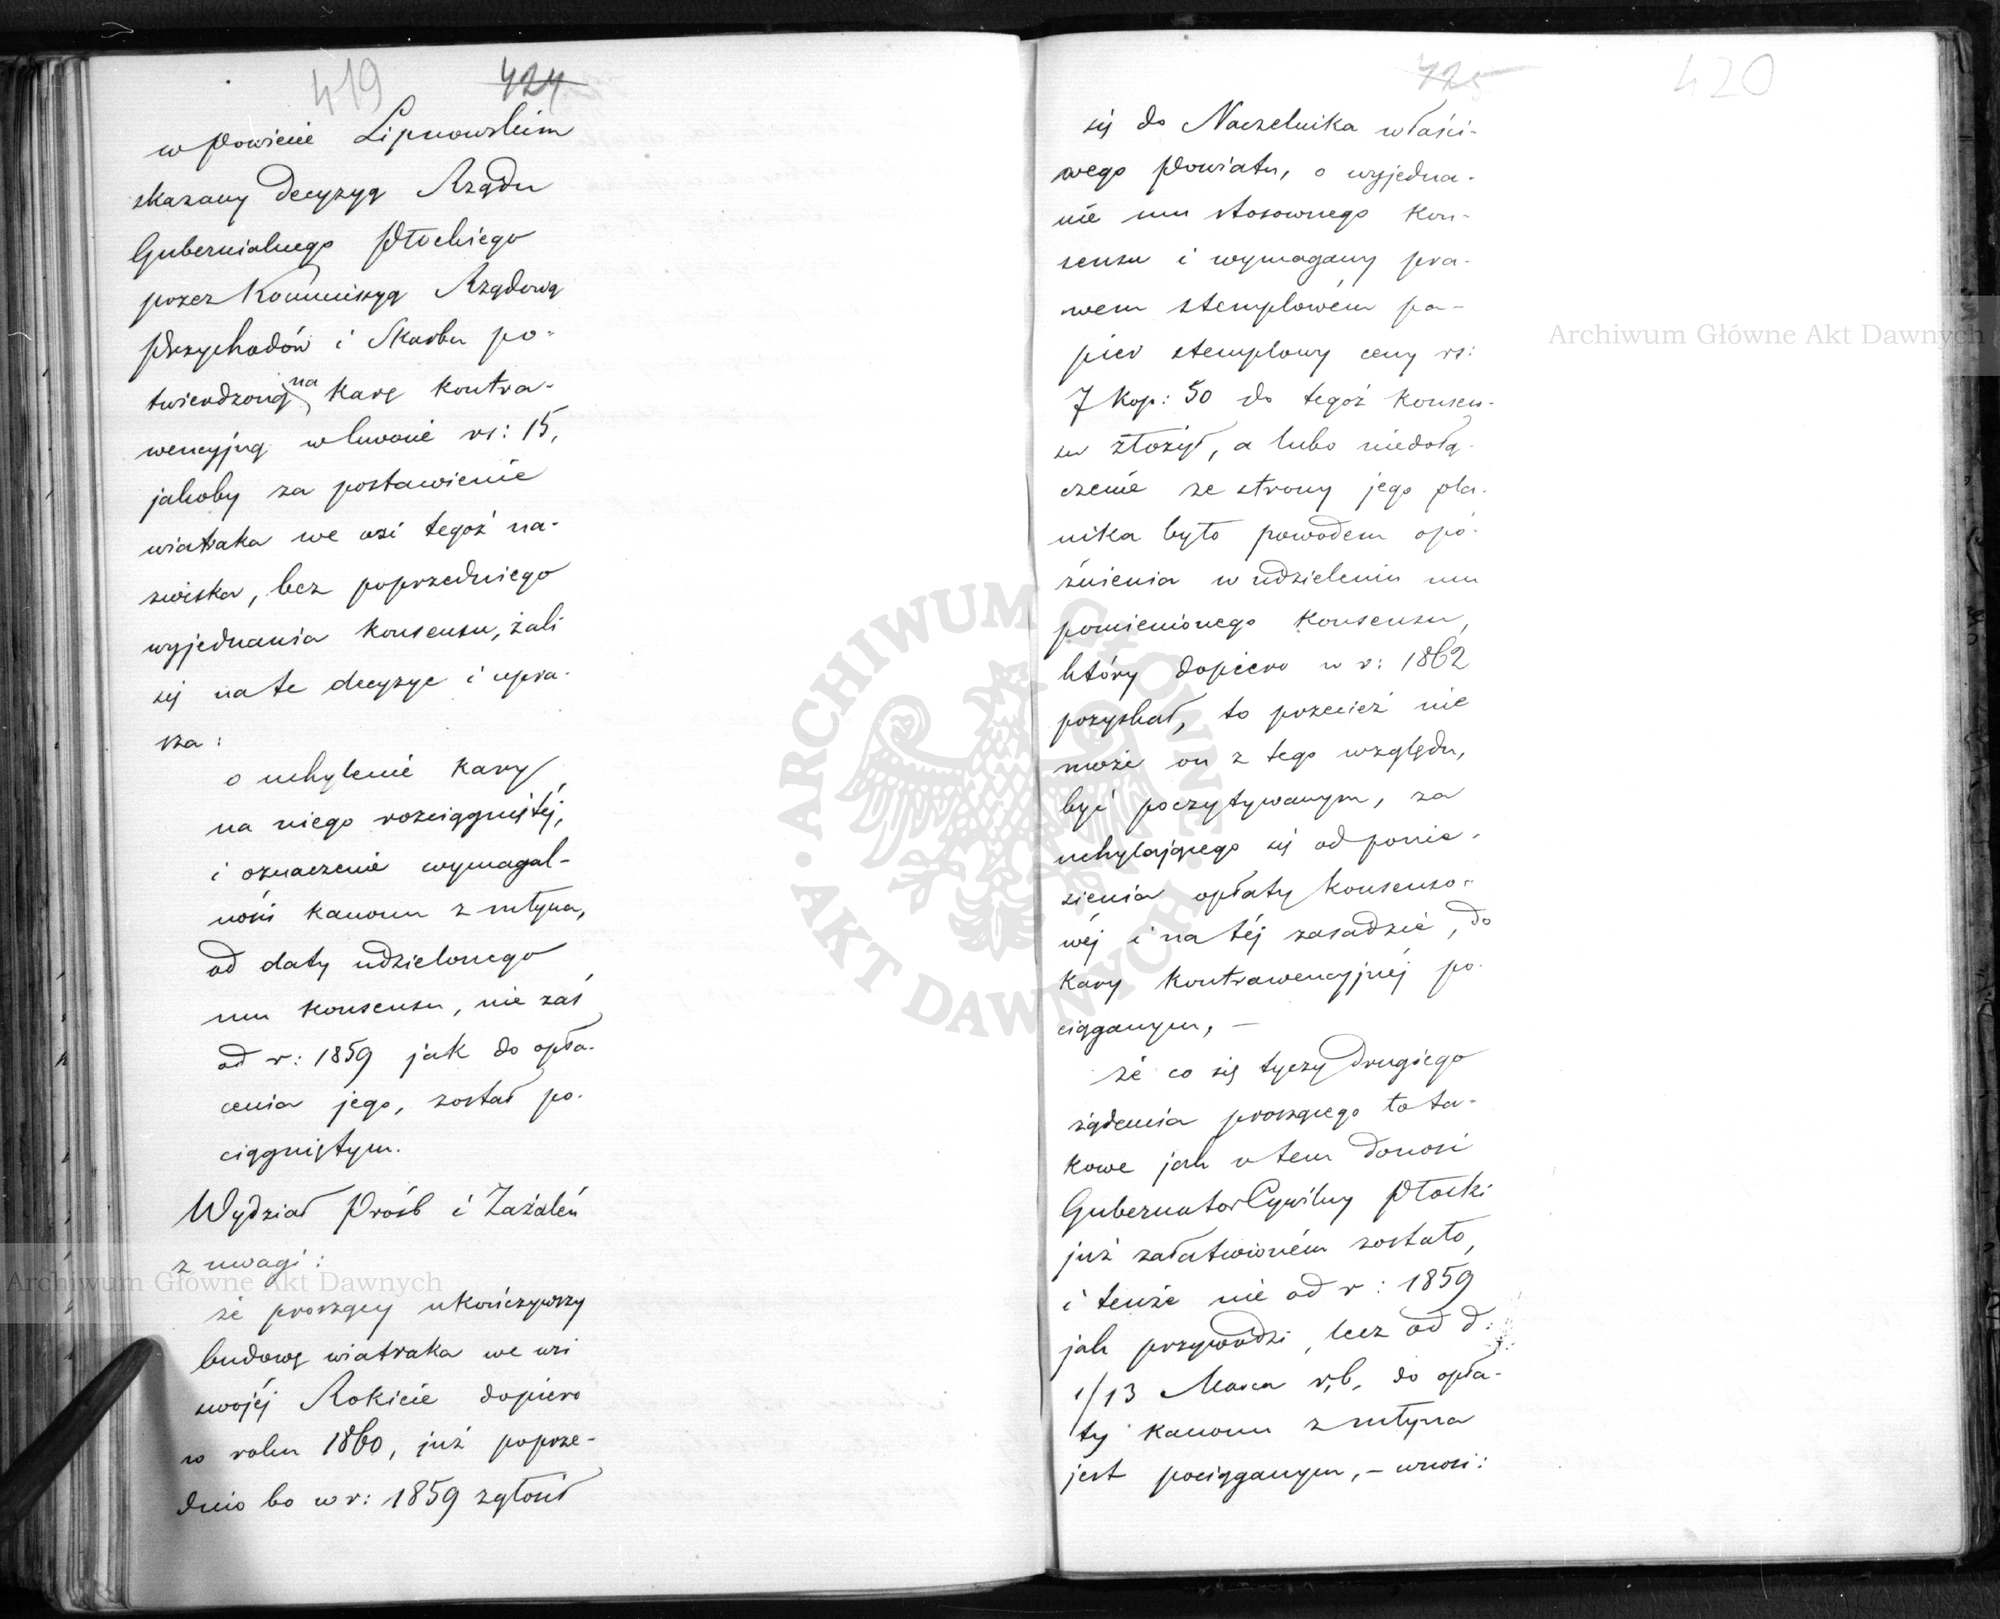 419 424
w Powiecie Lipnowskim
skazany decyzyą Rządu
Gubernialnego Płockiego
przez Kommissyą Rządową
Przychodów i Skarbu po-
twierdzoną na karę kontra-
wencyjną w kwocie rs: 15,
jakoby za postawienie
wiatraka we wsi tegoż na-
zwiska, bez poprzedniego
wyjednania konsensu, żali
się na te decyzye i upra-
sza:
o uchylenie kary
na niego rozciągniętéj,
i oznaczenie wymagal-
ności kanonu z młyna,
od daty udzielonego
mu konsensu, nie zaś
od r: 1859 jak do opła-
cenia jego, został po-
ciągniętym.
Wydział Próśb i Zażaleń
z uwagi:
że proszący ukończywszy
budowę wiatraka we wsi
swojéj Rokicie dopiero
w roku 1860, już poprze-
dnio bo w r: 1859 zgłosił
425 420
się do Naczelnika właści-
wego Powiatu, o wyjedna-
nie mu stosownego kon-
sensu i wymagany pra-
wem stemplowém pa-
pier stemplowy ceny rs:
7 kop: 50 do tegoż konsen-
su złożył, a lubo niedołą-
czenie ze strony jego pla-
nika było powodem opó-
źnienia w udzieleniu mu
pomienionego konsensu,
który dopiero w r: 1862
pozyskał, to przecież nie
może on z tego względu,
być poczytywanym, za
uchylającego się od ponie-
sienia opłaty konsenso-
wéj i na téj zasadzie, do
kary kontrawencyjnéj po-
ciąganym, —
że co się tyczy drugiego
żądania proszącego tota-
kowe jak o tem donosi
Gubernator Cywilny Płocki
już załatwioném zostało,
i tenże nie od r: 1859
jak przywodzi, lecz od d:
1/13 Marca r. b. do opła-
ty kanonu z młyna
jest pociąganym, — wnosi:
Archiwum Główne Akt Dawnych
Archiwum Główne Akt Dawnych
ARCHIWUM GŁÓWNE · AKT DAWNYCH ·